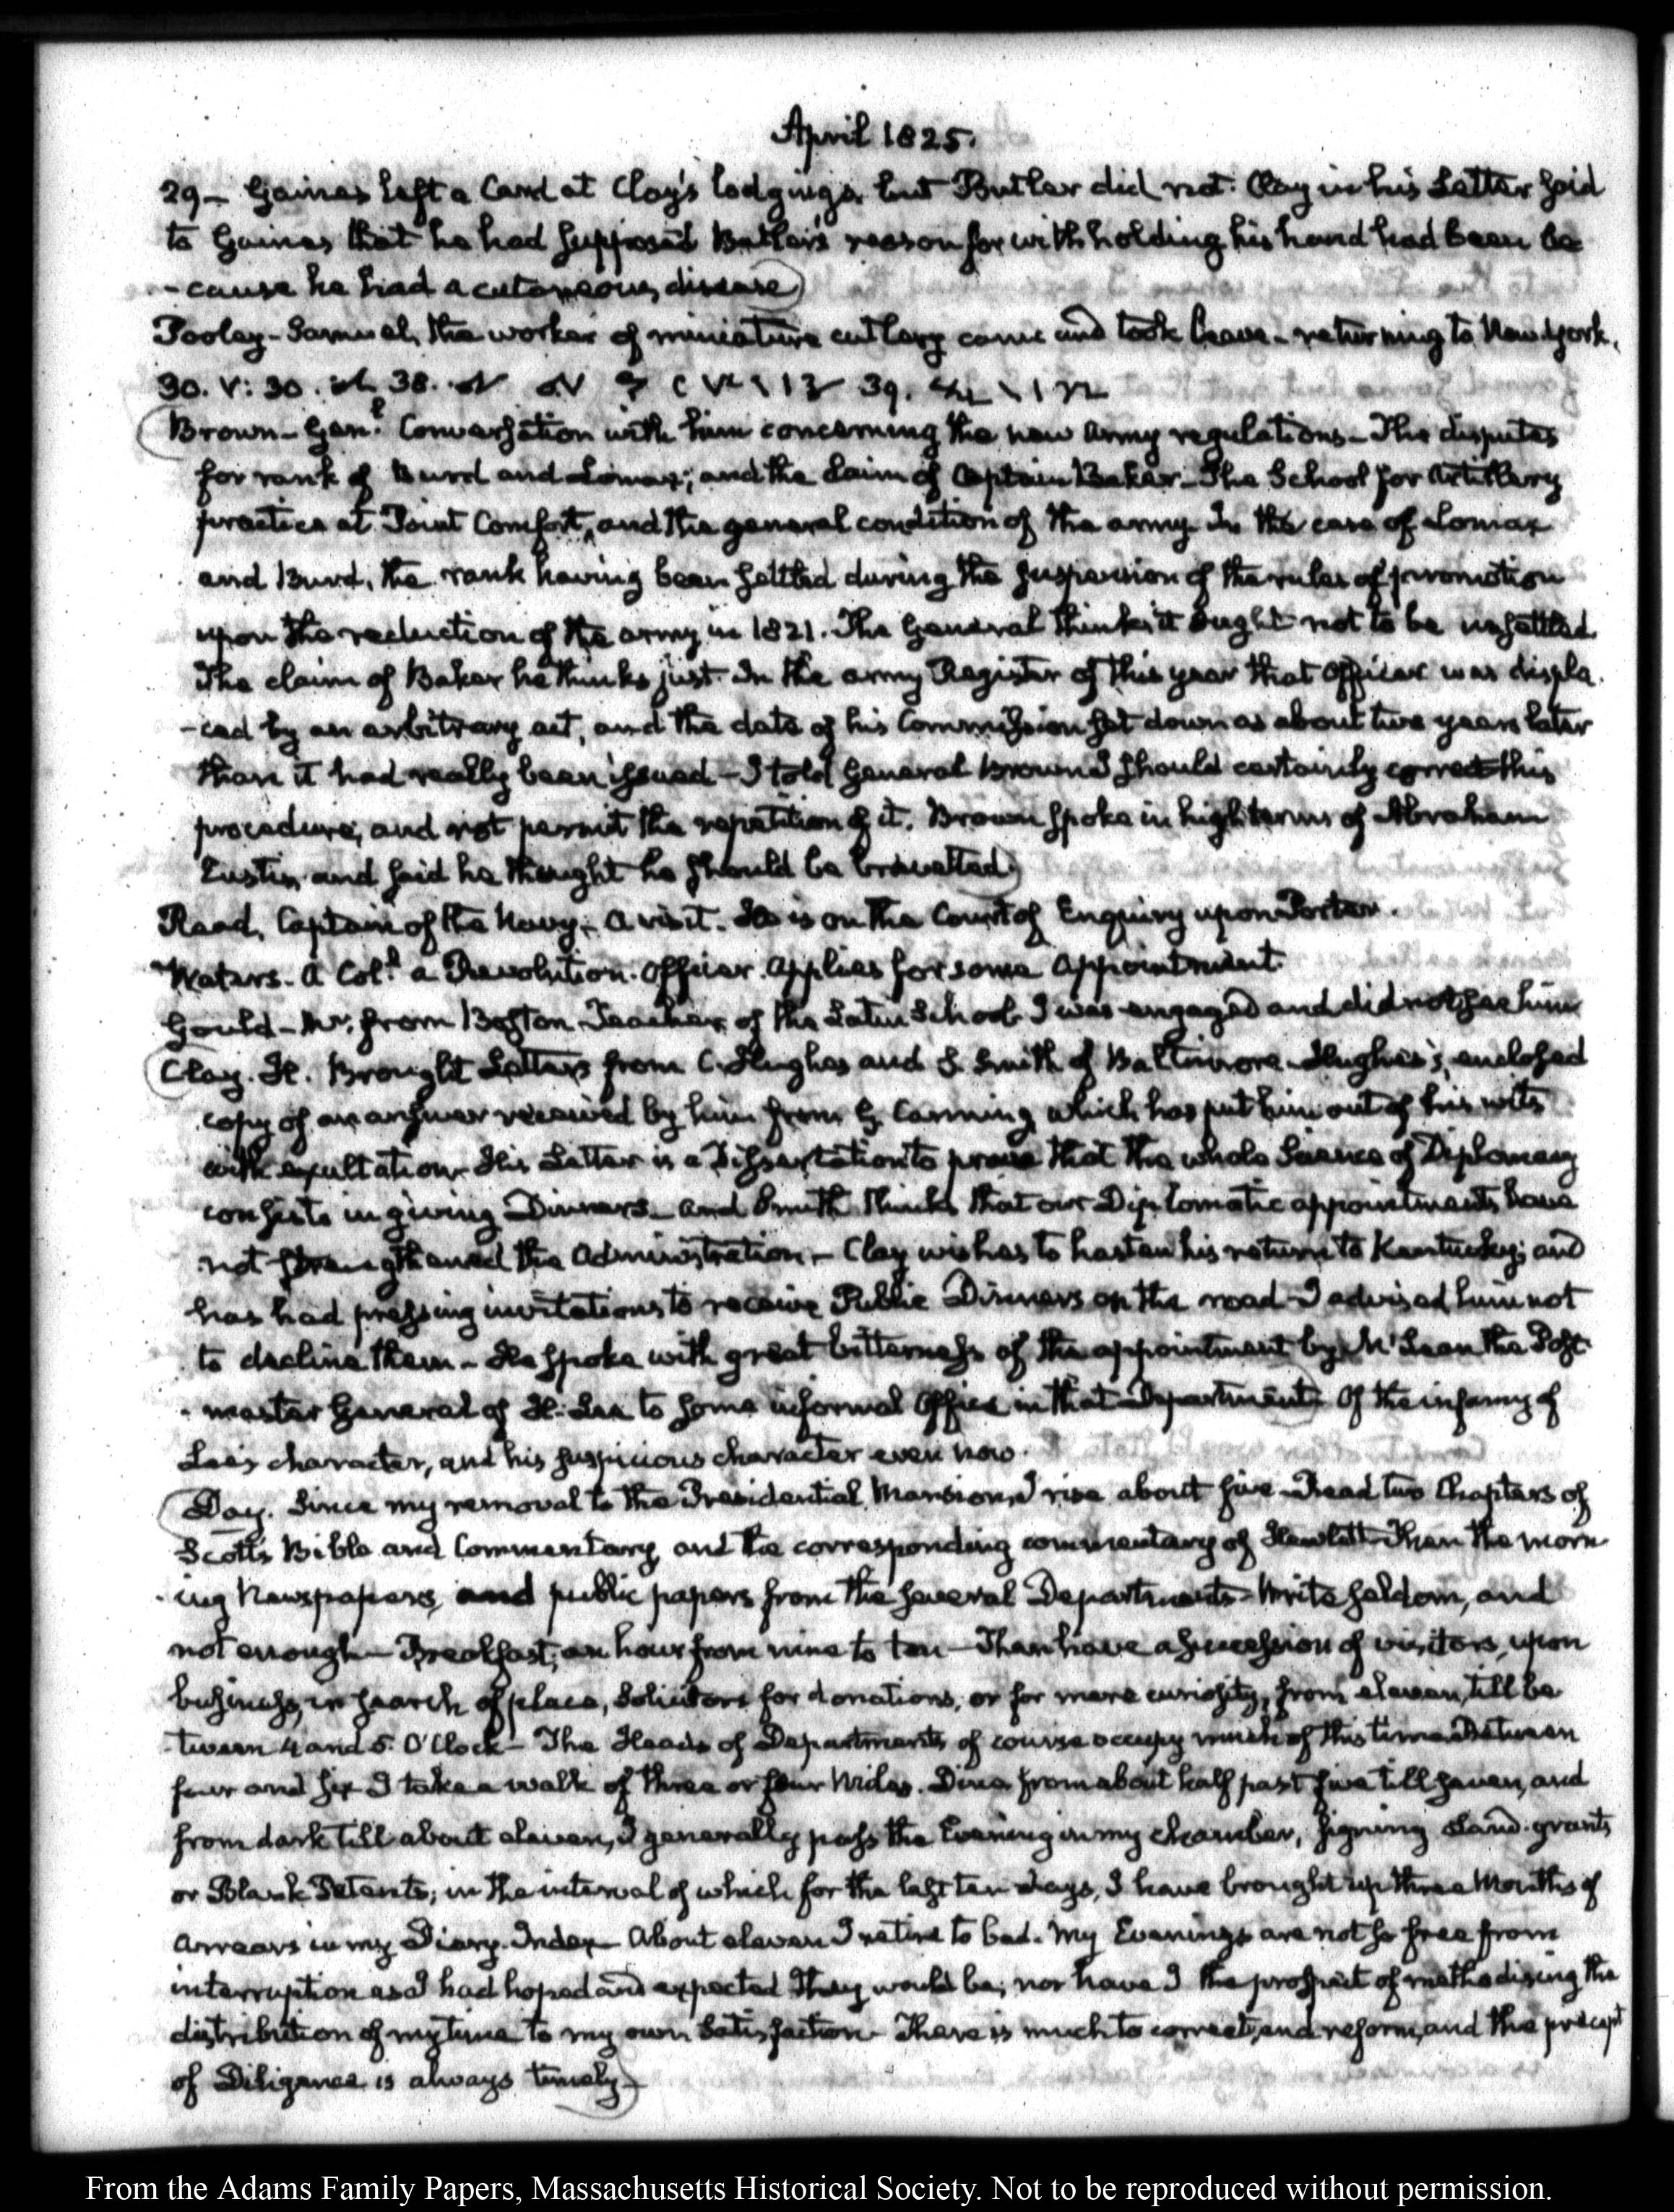 April 1825.
29– Gaines left a Card at Clay's lodgings but Butler did not. Clay in his Letter said
to Gaines that he had supposed Butler's reason for withholding his hand had been be
-cause he had a cutaneous disease)
Pooley– Samuel, the worker of miniature cutlery came and took leave– returning to New York.
30. V: 30.
(Brown– Genl. Conversation with him concerning the new Army regulations– The disputes
for rank of Burd and Lomax; and the claim of Captain Baker– The School for Artillery
practice at Point Comfort, and the general condition of the army. In the case of Lomax
and Burd, the rank having been settled during the suspension of the rules of promotion
upon the reduction of the army in 1821. The General thinks it ought not to be unsettled.
The claim of Baker he thinks just. In the army Register of this year that Officer was displa
-ced by an arbitrary act, and the date of his Commission set down as about two years later
than it had really been issued– I told General Brown I should certainly correct this
procedure, and not permit the repetition of it. Brown spoke in high terms of Abraham
Eustis and said he thought he should be brevetted)
Read, Captain of the Navy– a visit. He is on the Court of Enquiry upon Porter.
Waters. A Coll. a Revolution. Officer. Applies for some appointment.
Gould– Mr. from Boston Teacher of the Latin School. I was engaged and did not see him
(Clay. H. Brought Letters from C. Hughes and S. Smith of Baltimore– Hughes's, enclosed
copy of an answer received by him from G. Canning which has put him out of his wits
with exultation. His Letter is a Dissertation to prove that the whole Science of Diplomacy
consists in giving Dinners– and Smith thinks that our Diplomatic appointments have
not strengthened the Administration.– Clay wishes to hasten his return to Kentucky; and
has had pressing invitations to receive Public Dinners on the road– I advised him not
to decline them– He spoke with great bitterness of the appointment by McLean the Post
-master General of H. Lee to some informal Office in that Department) Of the infamy of
Lee's character, and his suspicious character even now.
(Day. Since my removal to the Presidential Mansion, I rise about five– Read two Chapters of
Scott's Bible and Commentary, and the corresponding commentary of Hewlett– Then the morn
-ing Newspapers, and public papers from the several Departments– Write seldom, and
not enough– Breakfast; an hour from nine to ten– Then have a succession of visitors, upon
business, in search of place, Solicitors for donations, or for mere curiosity, from eleven, till be
-tween 4 and 5. O'Clock– The Heads of Departments of course occupy much of this time. Between
four and six I take a walk of three or four Miles. Dine from about half past five till seven, and
from dark till about eleven, I generally pass the Evening in my chamber, signing Land-grants
or Blank Patents; in the interval of which for the last ten days, I have brought up three Months of
arrears in my Diary-Index– About eleven I retire to bed. My Evenings are not so free from
interruption as I had hoped and expected they would be; nor have I the prospect of methodising the
distribution of my time to my own satisfaction– There is much to correct, and reform, and the precept
of Diligence is always timely–)
From the Adams Family Papers, Massachusetts Historical Society. Not to be reproduced without permission.